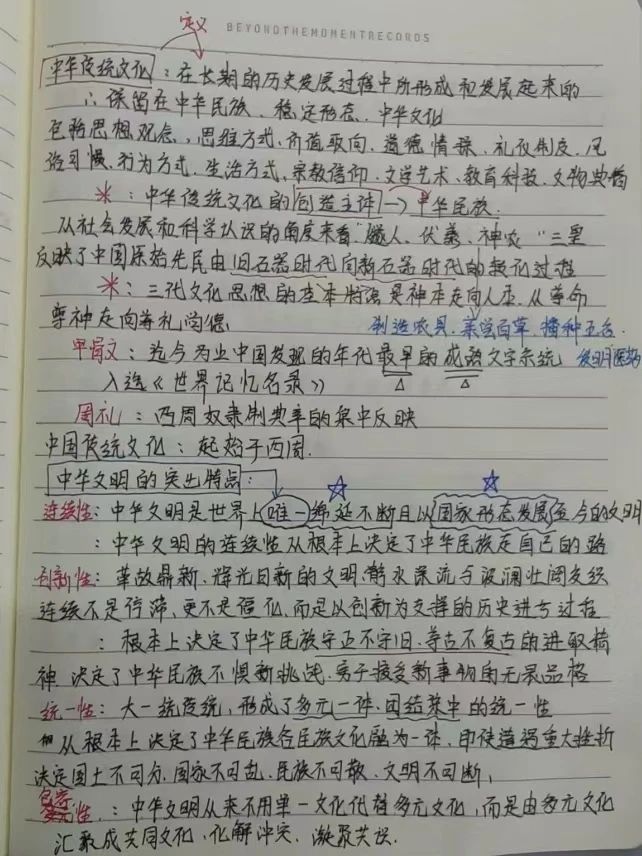 定义
BEYONDTHEMOMENTRECORDS
中华传统文化：在长期的历史发展过程中所形成和发展起来的
∴保留在中华民族、稳定形态、中华文化
包括思想观念，思维方式、价值取向、道德情操、礼仪制度、风
俗习惯、行为方式、生活方式、宗教信仰、文学艺术、教育科技、文物典籍
※：中华传统文化的创造主体→中华民族.
从社会发展和科学认识的角度来看"燧人、伏羲、神农"三皇
反映了中国原始先民由旧石器时代向新石器时代的转化过程
※：三代文化思想的基本特征是神本走向人本，从尊命
尊神走向尊礼尚德
制造农具、亲尝百草、播种五谷、
发明医药
甲骨文：迄今为止中国发现的年代最早的成熟文字系统
入选《世界记忆名录》
周礼：西周奴隶制典章的集中反映
中国传统文化：起始于西周.
中华文明的突出特点：
连续性：中华文明是世界上唯一绵延不断且以国家形态发展至今的文明
：中华文明的连续性从根本上决定了中华民族走自己的路
创新性：革故鼎新、辉光日新的文明，静水深流与波澜壮阔交织
连续不是停滞、更不是僵化，而是以创新为支撑的历史进步过程
：根本上决定了中华民族守正不守旧、尊古不复古的进取精
神 决定了中华民族不惧新挑战、勇于接受新事物的无畏品格
统一性：大一统传统，形成了多元一体、团结集中的统一性
从根本上决定了中华民族各民族文化融为一体、即使遭遇重大挫折
决定国土不可分、国家不可乱、民族不可散、文明不可断，
包容性：中华文明从来不用单一文化代替多元文化，而是由多元文化
汇聚成共同文化，化解冲突、凝聚共识.